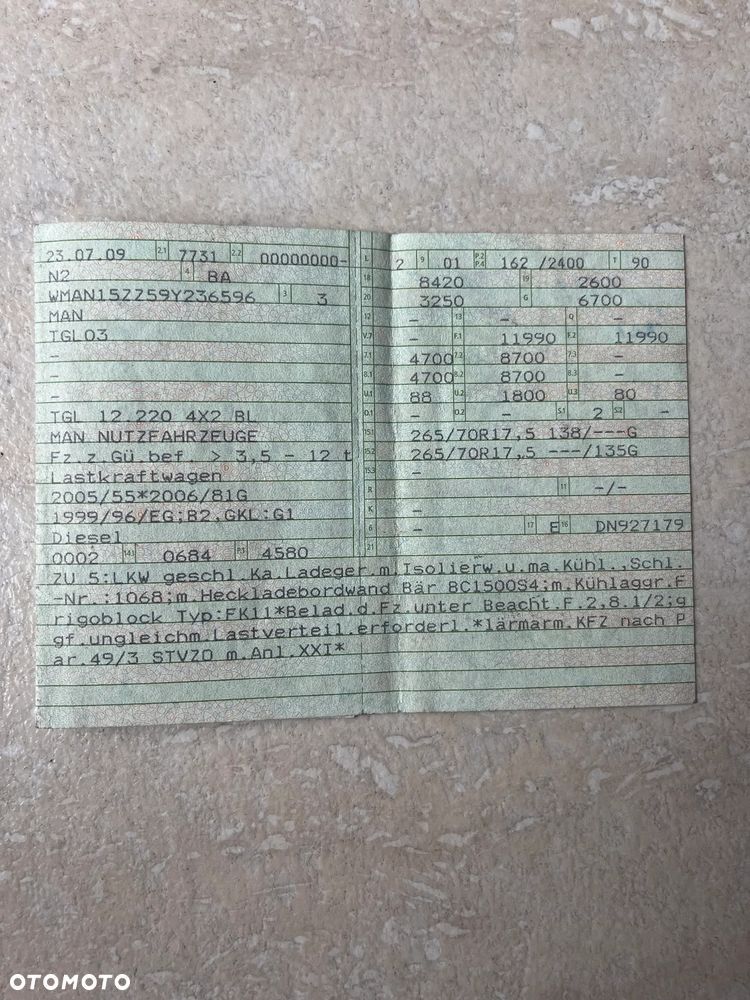 23.07.09 2.1 7731 2.2 00000000-
N2 4 BA
WMAN15ZZ59Y236596 3 3
MAN
TGL03
-
-
-
TGL 12.220 4X2 BL
MAN NUTZFAHRZEUGE
Fz.z.Gü.bef. > 3,5 - 12 t
Lastkraftwagen
2005/55*2006/81G
1999/96/EG;B2,GKL:G1
Diesel
0002 14.1 0684 P.1 4580
L 2 9 01 P.2 P.4 162 /2400 T 90
18 8420 19 2600
20 3250 G 6700
12 - 13 - Q -
V.7 - F.1 11990 F.2 11990
7.1 4700 7.2 8700 7.3 -
8.1 4700 8.2 8700 8.3 -
U.1 88 U.2 1800 U.3 80
O.1 - O.2 - S.1 2 S.2 -
15.1 265/70R17,5 138/---G
15.2 265/70R17,5 ---/135G
15.3 -
R 11 -/-
K -
6 - 17 E 16 DN927179
21
ZU 5:LKW geschl.Ka.Ladeger.m.Isolierw.u.ma.Kühl.,Schl.
-Nr.:1068;m.Heckladebordwand Bär BC1500S4;m.Kühlaggr.F
rigoblock Typ:FK11*Belad.d.Fz.unter Beacht.F.2,8.1/2;g
gf.ungleichm.Lastverteil.erforderl.*lärmarm.KFZ nach P
ar.49/3 STVZO m.Anl.XXI*
OTOMOTO